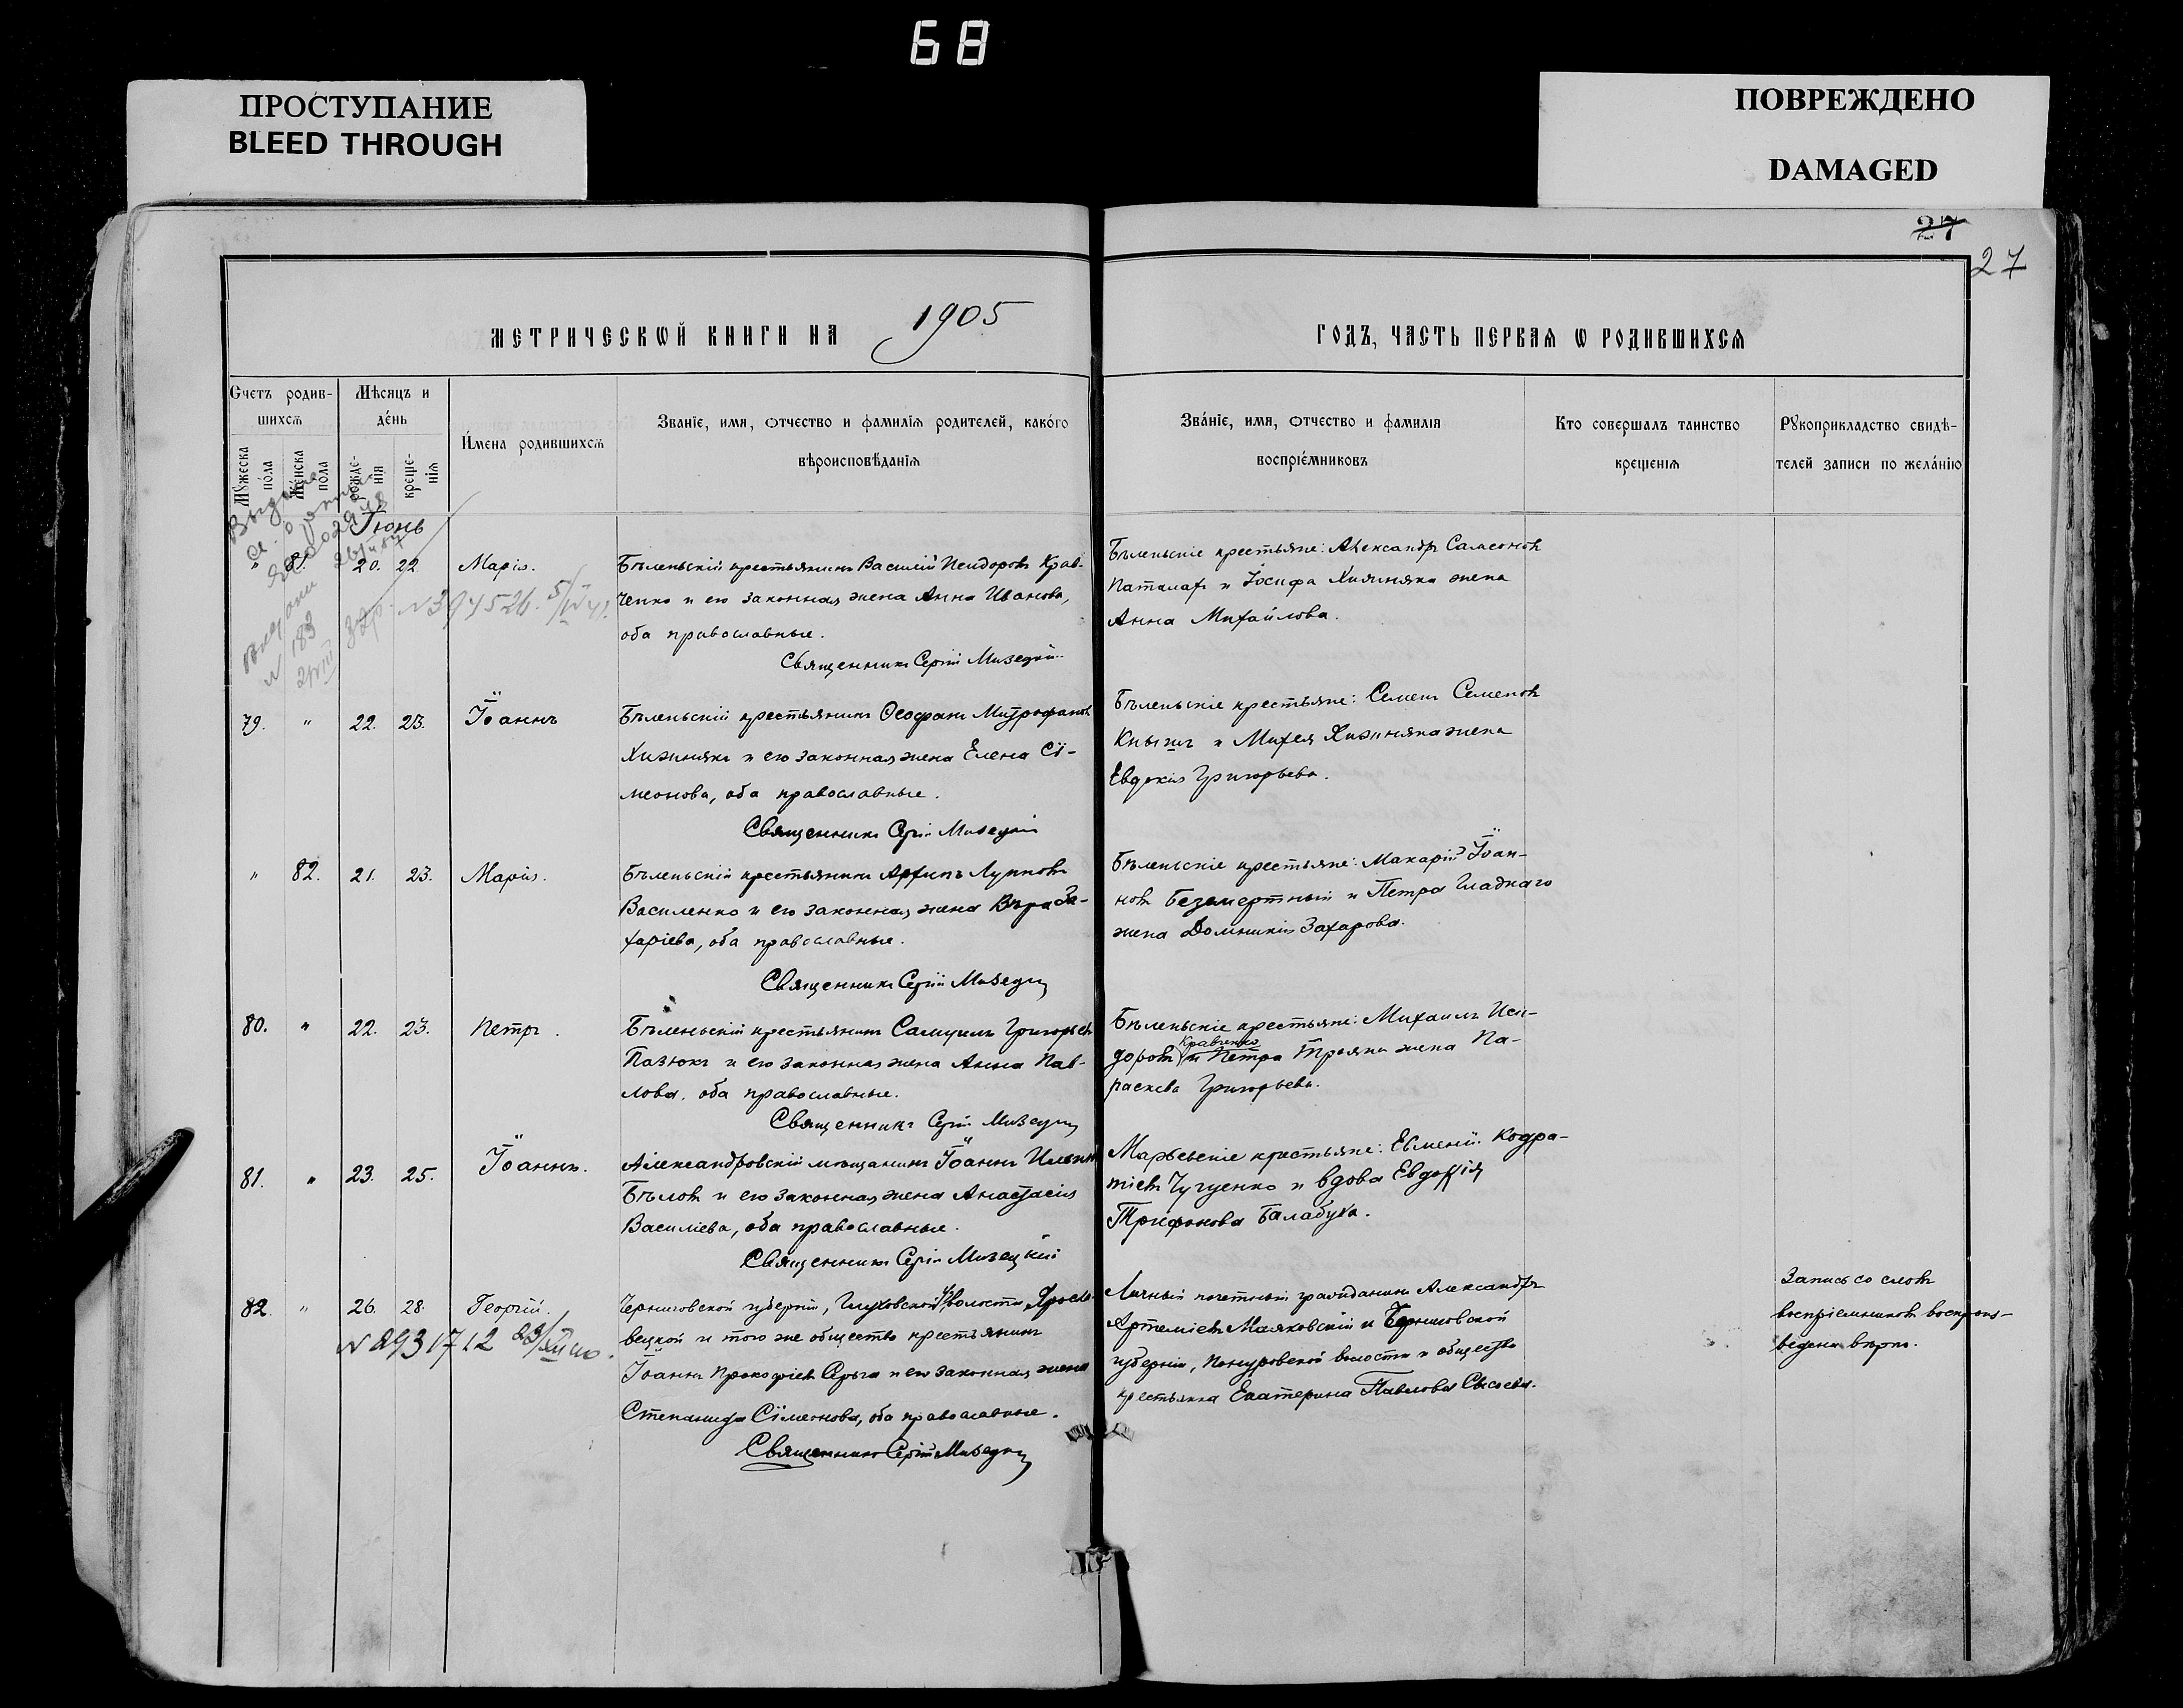 68
ПРОСТУПАНИЕ
BLEED THROUGH
ПОВРЕЖДЕНО
DAMAGED
27
27
МЕТРИЧЕСКѠЙ КНИГИ НА 1905
ГОДЪ, ЧАСТЬ ПЕРВАЯ Ѡ РОДИВШИХСЯ
Счетъ родив-
шихся
Мꙋжеска пола
Женска пола
Мѣсяцъ и
де́нь
рожде-
нія
креще-
нія
И́мена родившихся
Званіе, имя, ѻтчество и фамилія родителей, како́го
вѣроисповѣданія
Зва́ніе, имя, ѻтчество и фамилія
воспріе́мниковъ
Кто совершалъ таинство
крещенія
Рꙋкоприкладство свидѣ-
телей записи по жела́нію
Іюнь
" 81. 20. 22. Марія.
Бѣленьскій крестьянинъ Василій Исидоровъ Крав-
ченко и его законная жена Анна Иванова,
оба православные.
Священникъ Сергій Мизецкій
Бѣленьскіе крестьяне: Александръ Самсоновъ
Паталахъ и Іосифа Хижняка жена
Анна Михайлова.
№ 394526. 5/IV 41.
№ 183
79. " 22. 23. Іоаннъ
Бѣленьскій крестьянинъ Ѳеофанъ Митрофановъ
Хижнякъ и его законная жена Елена Сѵ-
меонова, оба православные.
Священникъ Сергій Мизецкій
Бѣленьскіе крестьяне: Семенъ Семеновъ
Книшъ и Михея Хижняка жена
Евдокія Григорьева.
" 82. 21. 23. Марія.
Бѣленьскій крестьянинъ Архипъ Лупповъ
Василенко и его законная жена Вѣра За-
харіева, оба православные.
Священникъ Сергій Мизецкій
Бѣленьскіе крестьяне: Макарій Іоан-
новъ Безсмертный и Петра Гладкаго
жена Домникія Захарова.
80. " 22. 23. Петръ.
Бѣленьскій крестьянинъ Самуилъ Григорьевъ
Пазюкъ и его законная жена Анна Пав-
лова, оба православные.
Священникъ Сергій Мизецкій
Бѣленьскіе крестьяне: Михаилъ Иси-
доровъ Кравченко и Петра Трояна жена Па-
раскева Григорьева.
81. " 23. 25. Іоаннъ.
Александровскій мѣщанинъ Іоаннъ Ильинъ
Бѣловъ и его законная жена Анастасія
Василіева, оба православные.
Священникъ Сергій Мизецкій
Марьевскіе крестьяне: Евменій Кодра-
тіевъ Чугуенко и вдова Евдокія
Трифонова Балабуха.
82. " 26. 28. Георгій.
№ 2931712
Черниговской губерніи, Глуховской у. волости Яросла-
вецкой и того же общества крестьянинъ
Іоаннъ Прокофіевъ Сѣрыга и его законная жена
Степанида Сѵмеонова, оба православные.
Священникъ Сергій Мизецкій
Личный почетный гражданинъ Александръ
Артеміевъ Маяковскій и Черниговской
губерніи, Понуровской волости и общества
крестьянка Екатерина Павлова Сысоева.
Запись со словъ
воспріемниковъ воспроиз-
ведена вѣрно.